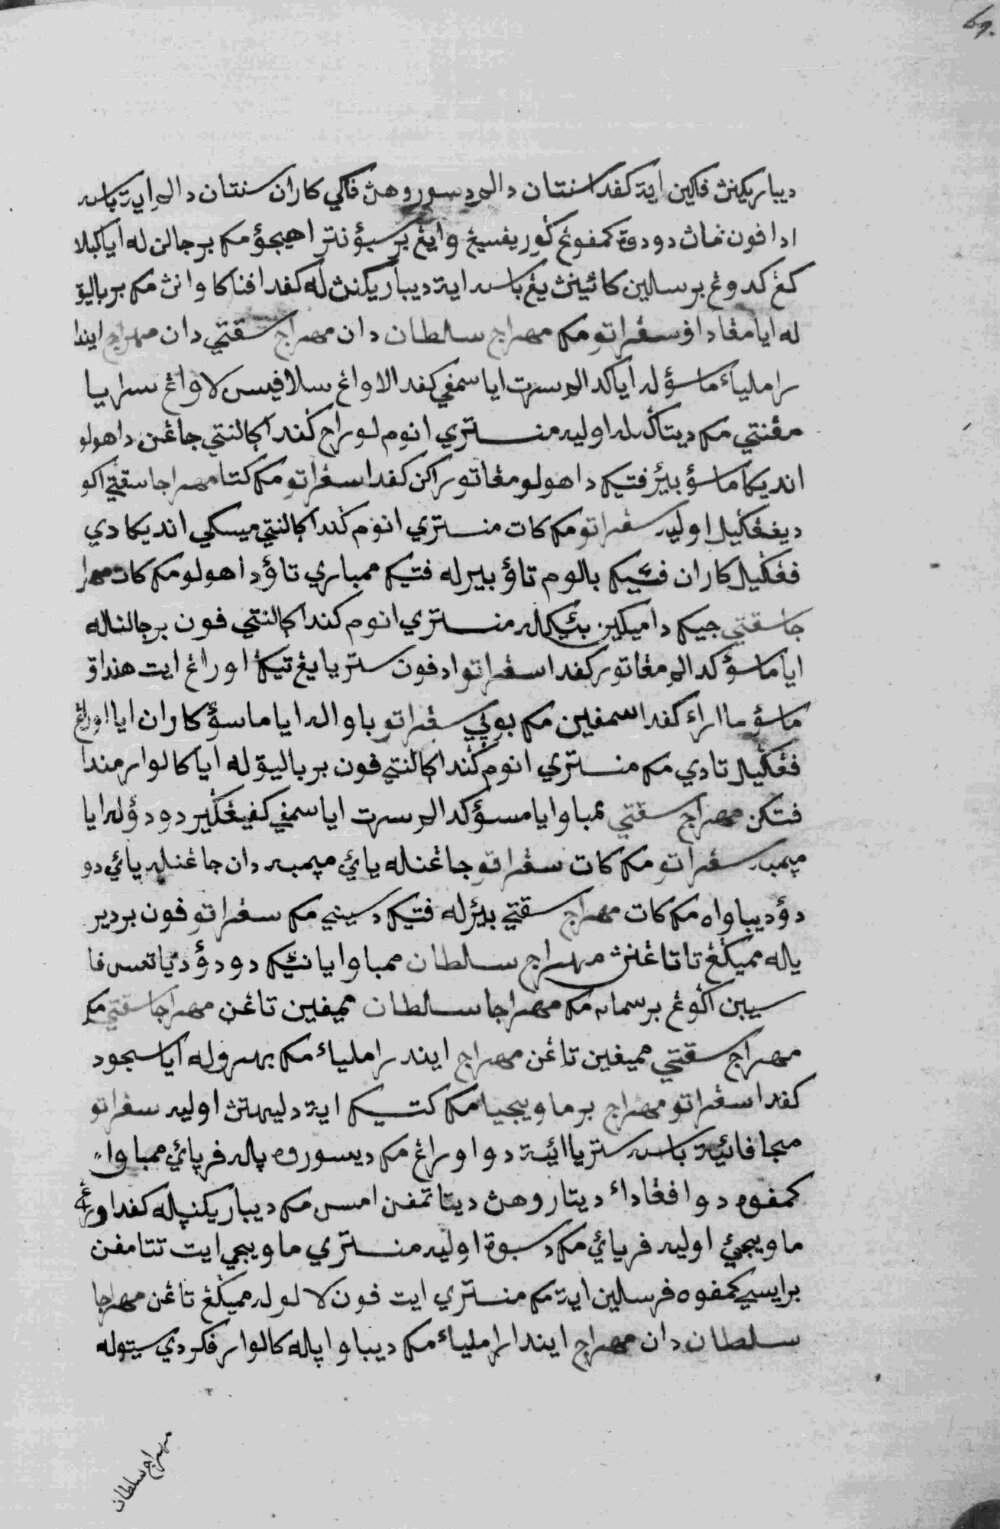 69.
ديباريكنڽ فاكين ايت كفد استنتان دالم دسوروهڽ فاكي كاران سنتان دالم ايت باسه
ادافون ... دودق كمفوڠ ... وايڠ برسبؤ نتر اهيجؤ مك برجالن له ايا كبلا
كڠ كدوڠ برسالين كائينڽ يڠ باسه ايت ديباريكنڽ له كفد افناكاوانڽ مك برباليق
له ايا مڠادف سڠراتو مك مهراج سلطان دان مهراج سقتي دان مهراج ايندا
را ملياء ماسؤله ايا كدالم سرت ايا سمفي كفد الاواڠ سلافيس لاواڠ سراي ايا
مڠنتي مك ديتاڬرله اوليه منتري انوم لوراج كندا كالنتي جاڠن داهولو
اندیكا ماسؤ بيئر فتيك داهولو مڠاتوراكن كفد اسڠراتو مك كتا مهراجا سقتي اكو
ديفڠݢيل اوليه سڠراتو مك كات منتري انوم كندا كالنتي ميسكي انديكا دي
فڠݢيل كاران فتيك بالوم تاؤ بيرله فتيك ممباري تاؤ داهولو مك كات مهرا
جا سقتي جيك داميكين بئيكله منتري انوم كندا كالنتي فون برجالنله
ايا ماسؤ كدالم مڠاتور كفد اسڠراتو ادفون ستريا يڠ تيݢ اوراڠ ايت هنداق
ماسؤ مااراء كفد اسمفين مك بوني سڠراتو باواله ايا ماسؤ كاران ايا اوراڠ
فڠݢيل تادي مك منتري انوم كندا كالنتي فون برباليق له ايا كالوار مندا
فتكن مهراج سقتي ممباوا ايا مسؤ كدالم سرت ايا سمفي كفيڠݢير دودؤله ايا
ميمبه سڠراتو مك كات سڠراتو جاڠنله يائي ميمبه دان جاڠنله يائي دو
دؤ ديباواه مك كات مهراج سقتي بيئرله فتيك دسيني مك سڠراتو فون بردير
ياله مميݢڠ تاتاڠنڽ مهراج سلطان ممباوا يانئيك دودؤ دياتس فا
سيبن اݢوڠ برسمان مك مهراجا سلطان مميفين تاڠن مهراجا سقتي مك
مهراج سقتي مميفين تاڠن مهراج ايندرا ملياء مك بهروله ايا سجود
كفد اسڠراتو مهراج برماويجيا مك كتيك ايت دليهتڽ اوليه سڠراتو
مجافائيت باسه ستريا ايت دوا اوراڠ مك ديسوروه ڽاله فرياي ممباواء
كمفوه دوا افڠاداء ديتاروهڽ ديتا تمفن امس مك ديباريكنڽاله كفد اوراڠ
ماويجيئ اوليه فرياي مك دسبوت اوليه منتري ماويجي ايت تتامفن
براييسي كمفوه فرسلين ايت مك منتري ايت فون لالوله مميݢڠ تاڠن مهراجا
سلطان دان مهراج ايندارا ملياء مك ديباواڽاله كالوار فكردي ستوله
مهراج سلطان